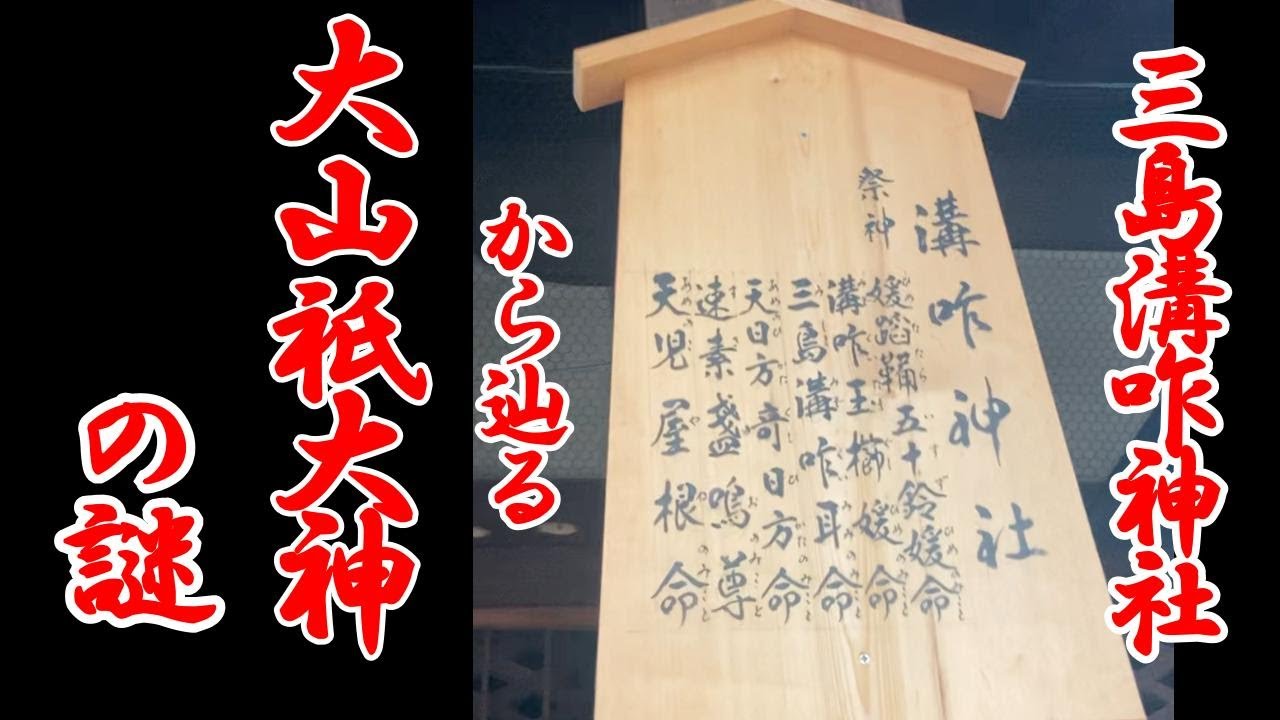 三島溝咋神社
から辿る
大山祇大神
の謎
溝咋神社
祭神
媛蹈鞴五十鈴媛命
溝咋玉櫛媛命
三島溝咋耳命
天日方奇日方命
速素盞嗚尊
天児屋根命